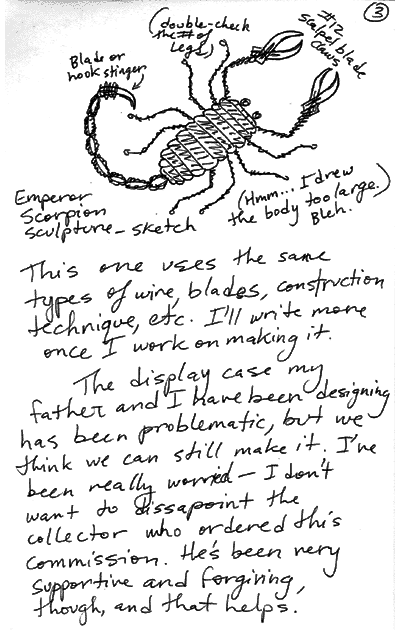 3
(double-check
the # of
legs)
#12
scalpel blade
claws
Blade or
hook stinger
Emperor
Scorpion
sculpture - sketch
(Hmm... I drew
the body too large.
Bleh.)
This one uses the same
types of wire, blades, construction
technique, etc. I'll write more
once I work on making it.
The display case my
father and I have been designing
has been problematic, but we
think we can still make it. I've
been really worried - I don't
want to dissapoint the
collector who ordered this
commission. He's been very
supportive and forgiving,
though, and that helps.